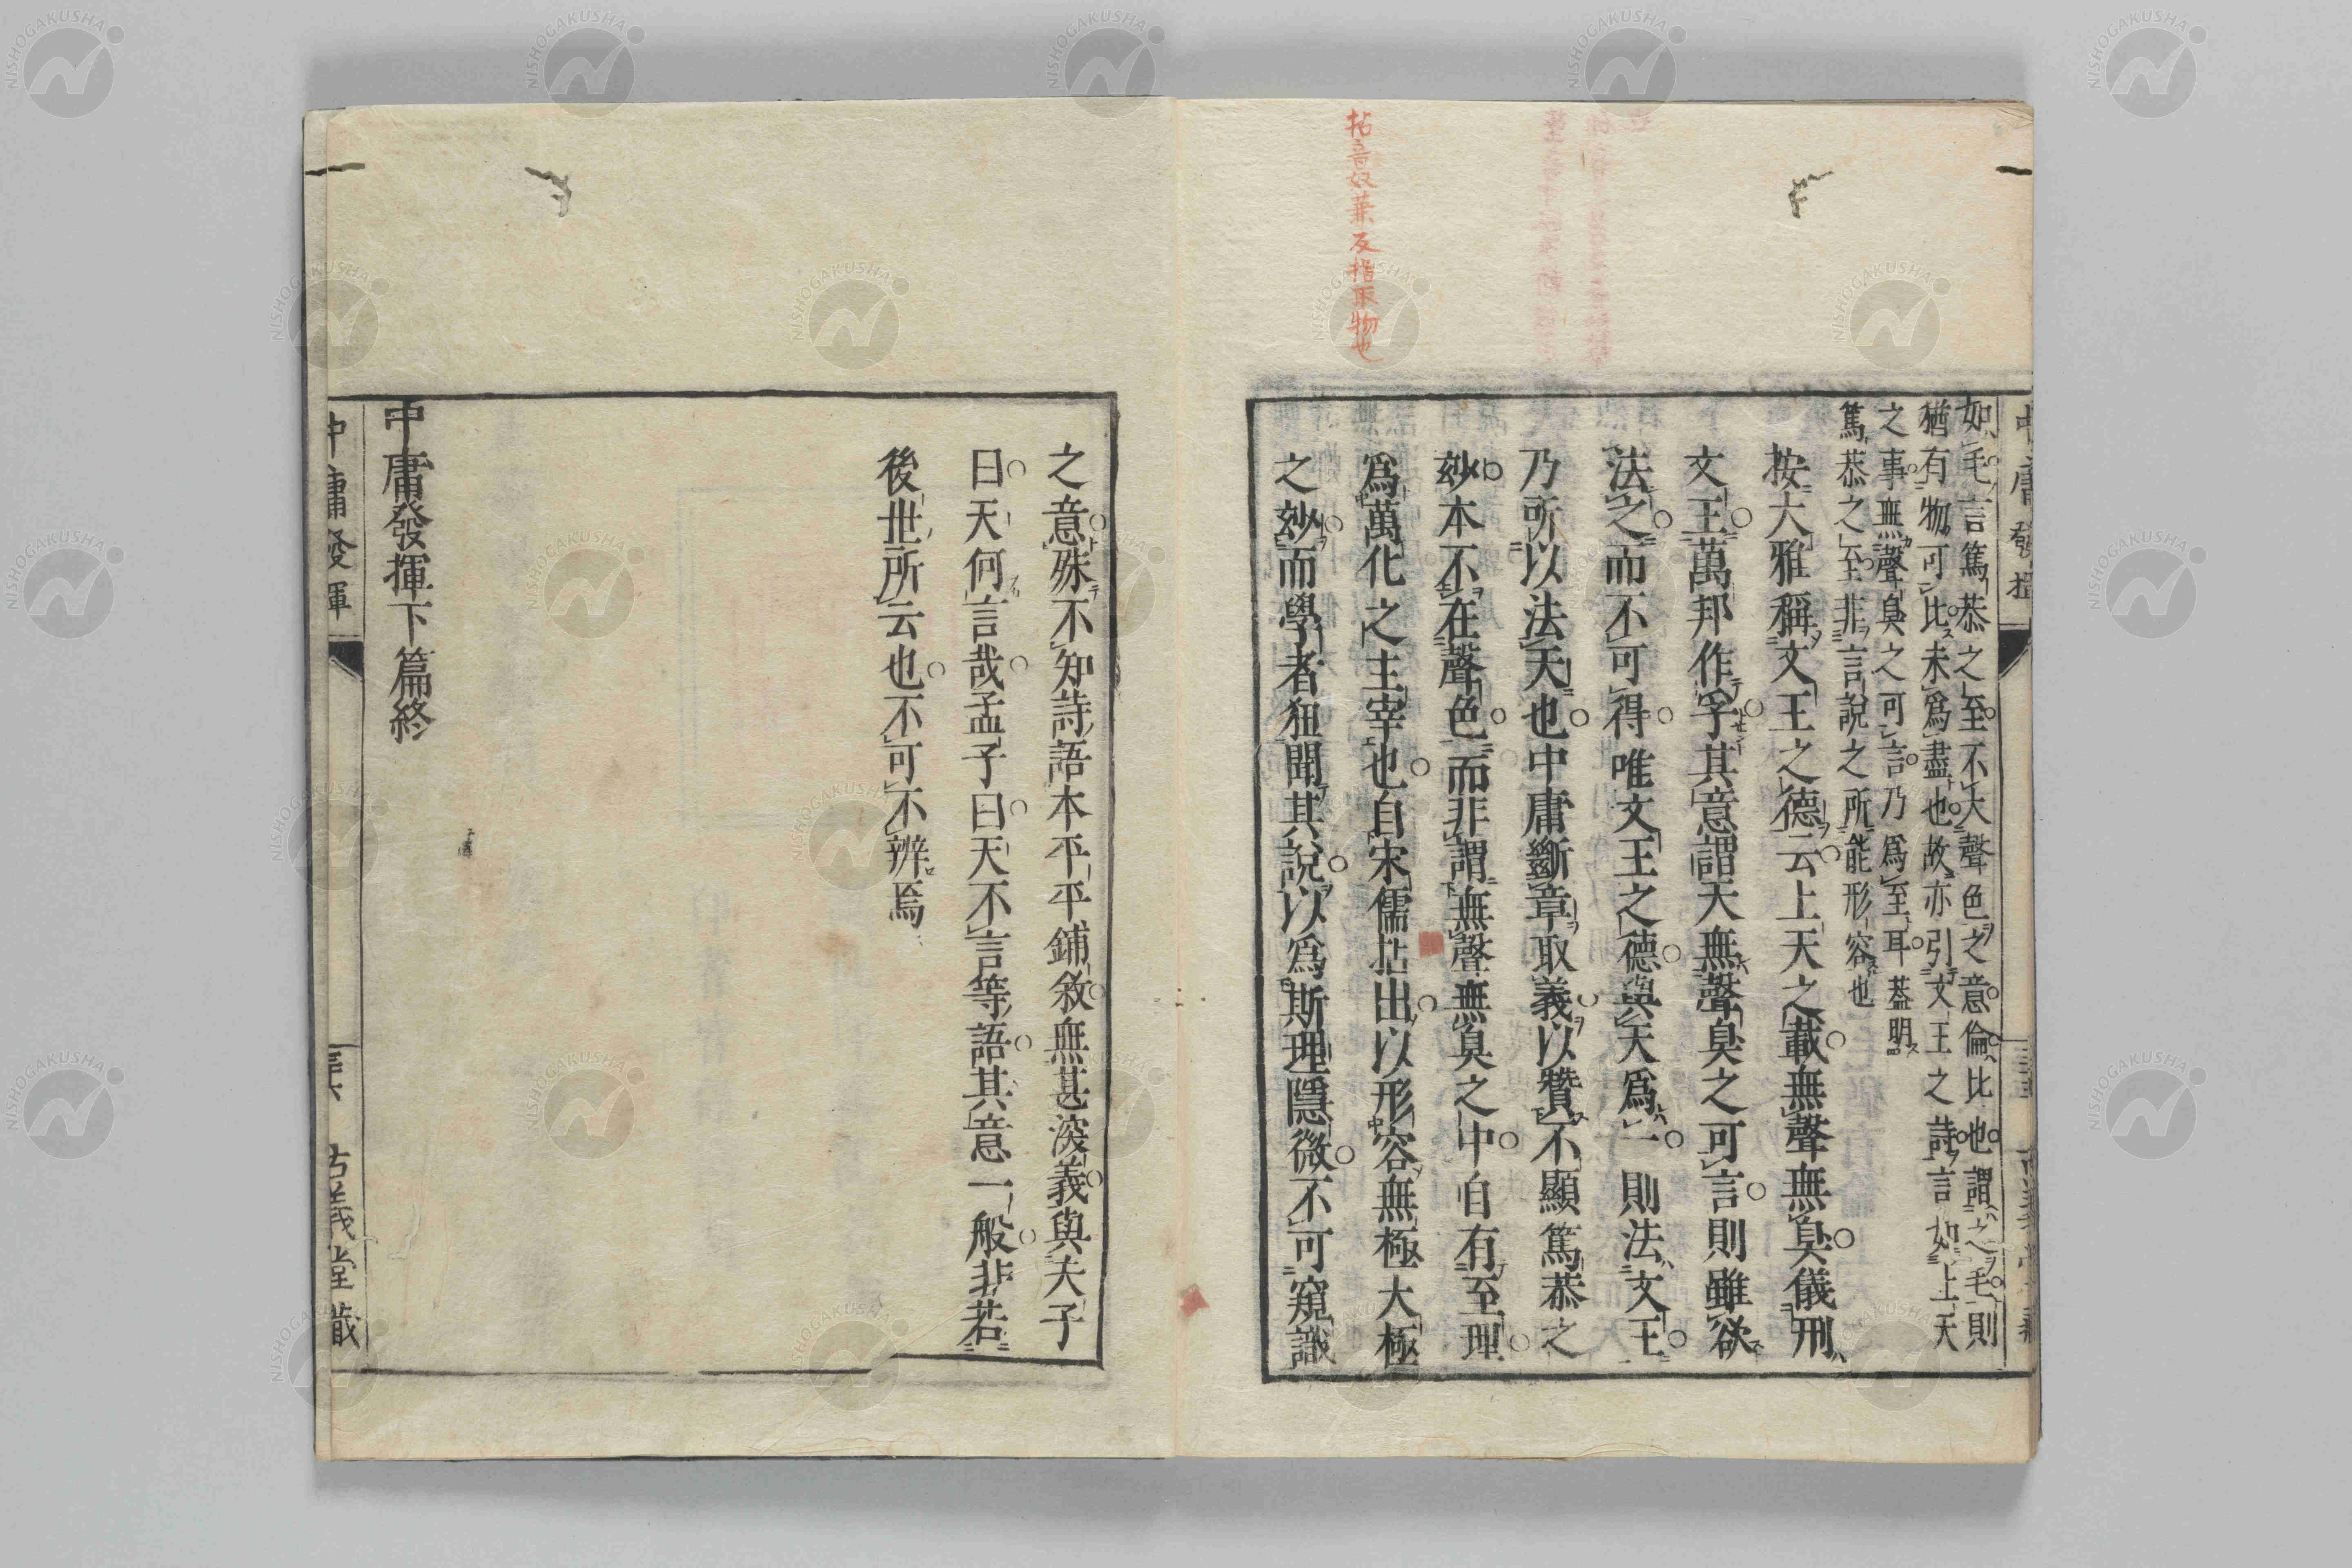 拈音奴蒹反指取物也
如毛言篤恭之至不大聲色之意倫比也謂之毛則
猶有物可比未爲盡也故亦引文王之詩言如上天
之事無聲臭之可言乃爲至耳葢明
篤恭之至非言說之所能形容也
按大雅稱文王之德云上天之載無聲無臭儀刑
文王萬邦作孚其意謂天無聲臭之可言則雖欲
法之而不可得唯文王之德與天爲一則法文王
乃所以法天也中庸斷章取義以贊不顯篤恭之
玅本不在聲色而非謂無聲無臭之中自有至理
爲萬化之主宰也自宋儒拈出以形容無極大極
之玅而學者狃聞其說以爲斯理隱微不可窺識
之意殊不知詩語本平平鋪敘無甚深義與夫子
曰天何言哉孟子曰天不言等語其意一般非若
後世所云也不可不辨焉
中庸發揮下篇終
中庸發揮
古義堂藏
NISHOGAKUSHA